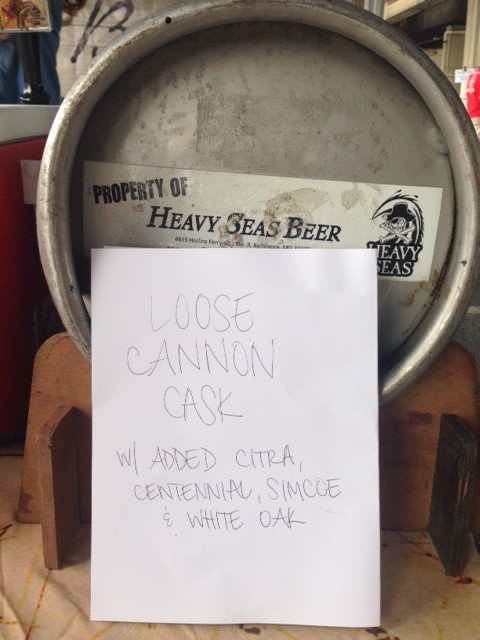 PROPERTY OF
HEAVY SEAS BEER
4615 Hollins Ferry
HEAVY
SEAS
LOOSE
CANNON
CASK
W/ ADDED CITRA,
CENTENNIAL, SIMCOE
& WHITE OAK